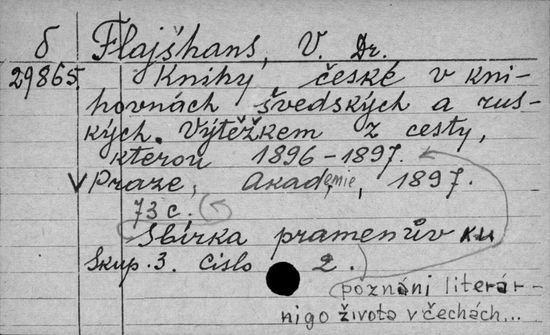 б Flajšhans, V. Dr.
29865. Knihy české v kni-
hovnách švedských a rus-
kých. Výtěžkem z cesty,
kterou 1896-1897.
V Praze, Akademie, 1897.
73 c.
Sbírka pramenův ku
Skup. 3. Čislo 2.
poznáni literár-
nigo života v čechách...